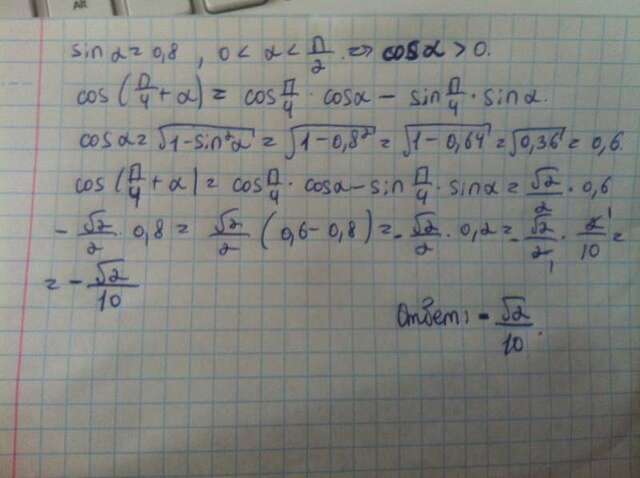 sin α = 0,8 , 0 < α < П/2 => cos α > 0.
cos (П/4 + α) = cos П/4 · cos α − sin П/4 · sin α.
cos α = √(1−sin²α) = √(1−0,8²) = √(1−0,64) = √0,36 = 0,6.
cos (П/4 + α) = cos П/4 · cos α − sin П/4 · sin α = √2/2 · 0,6
− √2/2 · 0,8 = √2/2 (0,6−0,8) = −√2/2 · 0,2 = −√2/2 · 2/10 =
= −√2/10
Ответ: −√2/10.